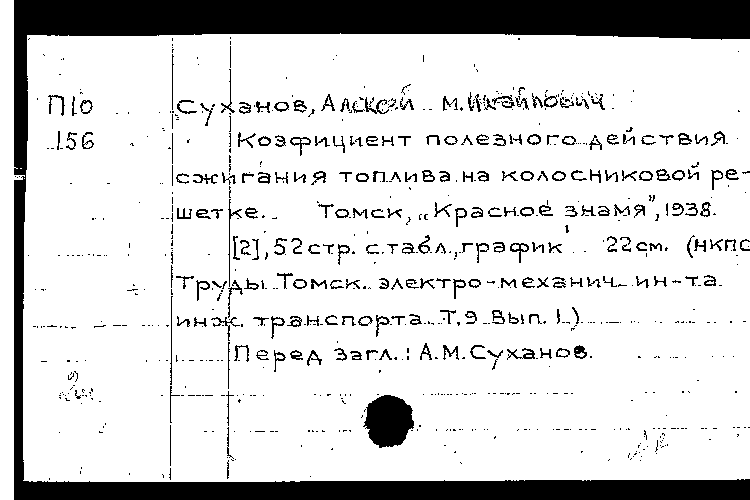 П10 Суханов, Алексей Михайлович
156 Коэфициент полезного действия
сжигания топлива на колосниковой ре-
шетке. Томск, „Красное знамя", 1938.
[2], 52 стр. с табл., график 22 см. (НКПС
Труды Томск. электро-механич. ин-та
инж. транспорта Т. 9 Вып. 1.)
Перед загл.: А.М. Суханов.